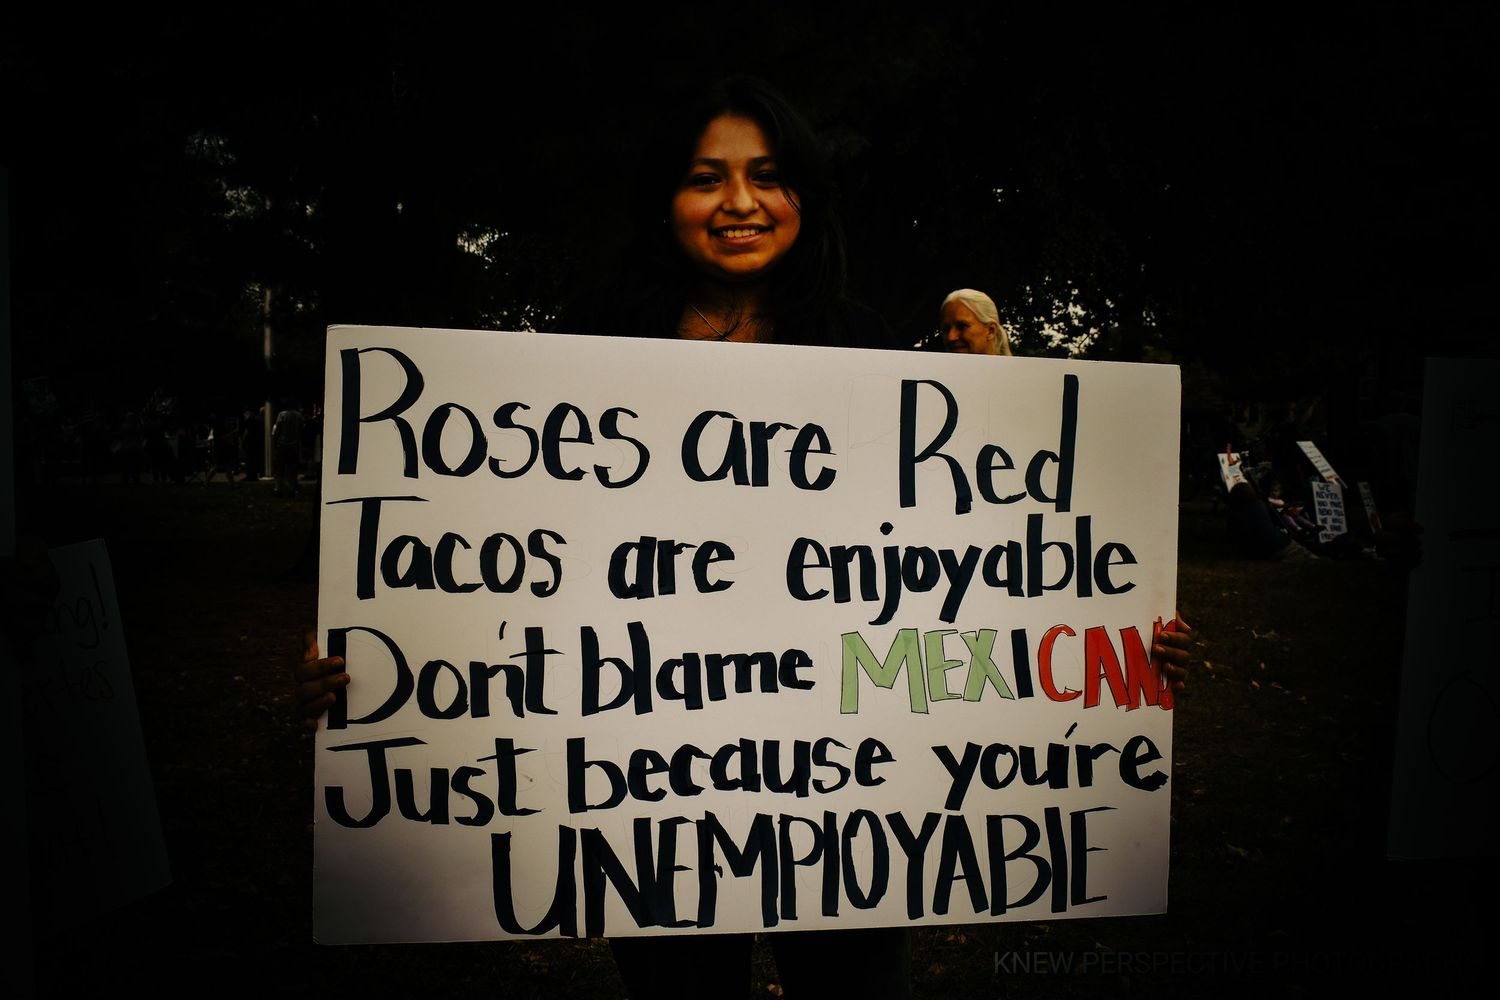 Roses are Red
Tacos are enjoyable
Don't blame MEXICANS
Just because you're
UNEMPlOYABlE
KNEW PERSPECTIVE PHOTOGRAPHY